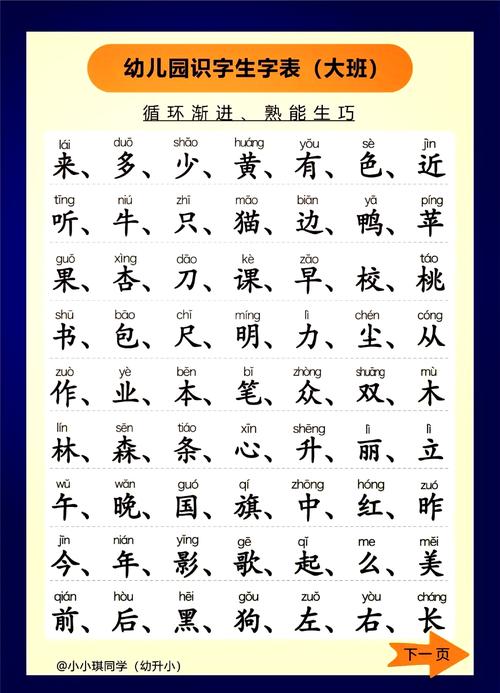 幼儿园识字生字表（大班）
循环渐进、熟能生巧
lái duō shǎo huáng yǒu sè jìn
来、多、少、黄、有、色、近
tīng niú zhī māo biān yā píng
听、牛、只、猫、边、鸭、苹
guǒ xìng dāo kè zǎo táo
果、杏、刀、课、早、校、桃
shū bāo chǐ míng lì chén cóng
书、包、尺、明、力、尘、从
zuò yè běn bǐ zhòng shuāng mù
作、业、本、笔、众、双、木
lín sēn tiáo xīn shēng lì lì
林、森、条、心、升、丽、立
wǔ wǎn guó qí zhōng hóng zuó
午、晚、国、旗、中、红、昨
jīn nián yǐng gē qǐ me měi
今、年、影、歌、起、么、美
qián hòu hēi gǒu zuǒ yòu cháng
前、后、黑、狗、左、右、长
@小小琪同学（幼升小）
下一页